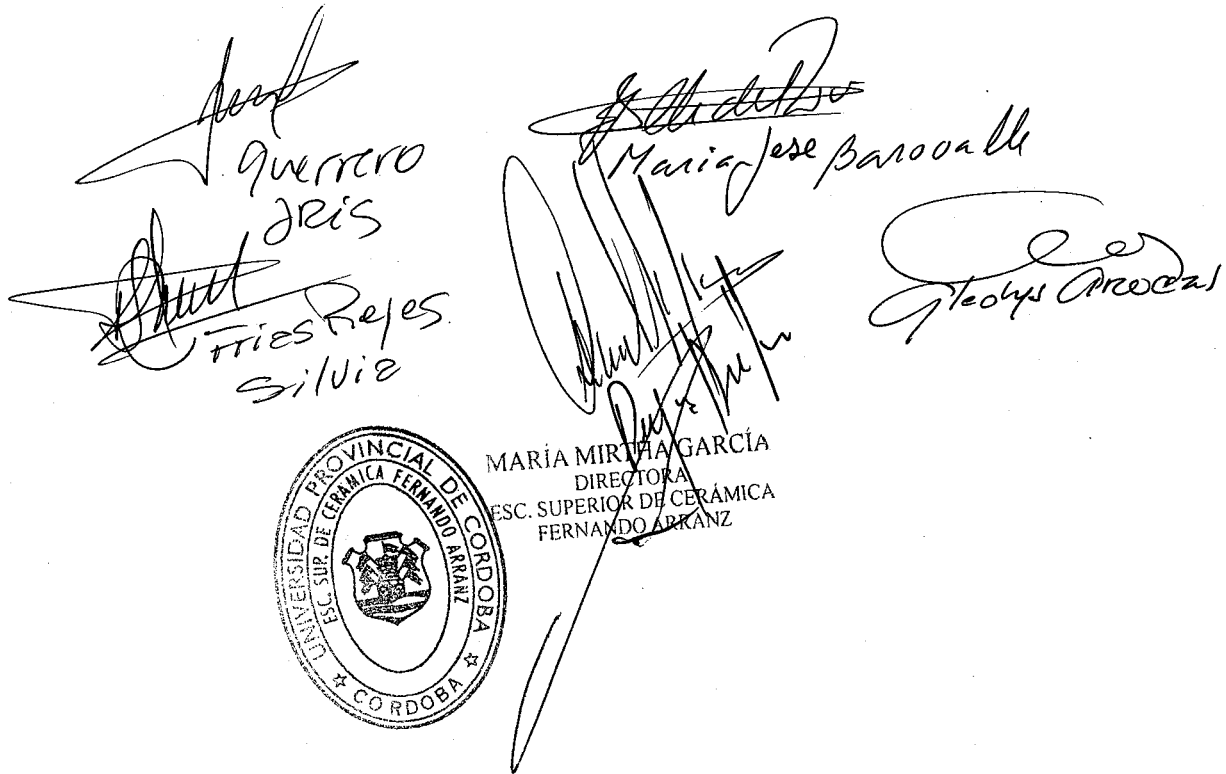 Guerrero
IRIS
Maria Jose Barovalle
Frias Reyes
Silvia
Gladys
MARÍA MIRTHA GARCÍA
DIRECTORA
ESC. SUPERIOR DE CERÁMICA
FERNANDO ARRANZ
UNIVERSIDAD PROVINCIAL DE CORDOBA
ESC. SUP. DE CERÁMICA FERNANDO ARRANZ
CORDOBA